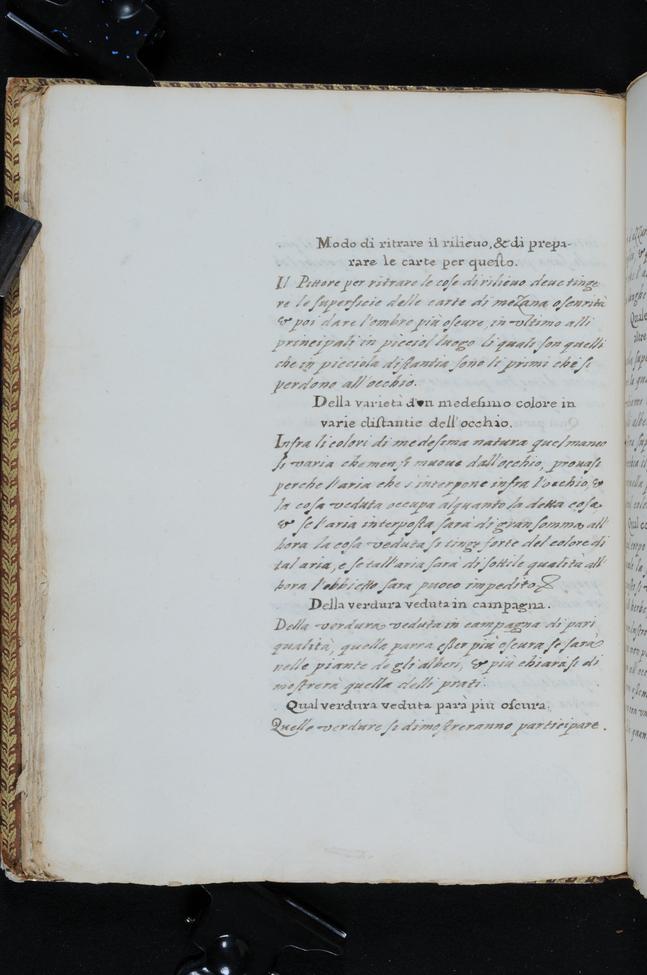 Modo di ritrare il rilieuo, & di prepa-
rare le carte per questo.
Il Pittore per ritrare le cose di rilieuo deue tinge
re le superficie delle carte di mezana oscurità
& poi dare l'ombre più oscure, in vltimo alli
principali in picciol luogo li quali son quelli
che in picciola distantia sono li primi che si
perdono all'occhio.
Della varietà d'vn medesimo colore in
varie distantie dell'occhio.
Infra li colori di medesema natura quel manco
si varia che men si muoue dall'occhio, prouasi
perche l'aria che s'interpone infra l'occhio, &
la cosa veduta occupa alquanto la detta cosa,
& se l'aria interposta sarà di gran somma, all'
hora la cosa veduta si tinge forte del colore di
tal aria, e se tall'aria sarà di sottile qualità all'
hora l'obbietto sara puoco impedito
Della verdura veduta in campagna.
Della verdura veduta in campagna di pari
qualità, quella parra esser più oscura se sarà
nelle piante de gli alberi, & più chiara si di
mostrerà quella delli prati.
Qual verdura veduta parà più oscura.
Quelle verdure si dimostreranno participare.